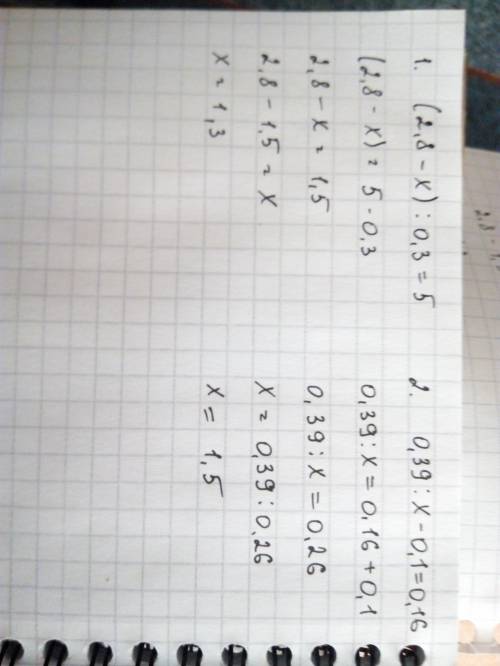 1. (2,8 - x) : 0,3 = 5
(2,8 - x) = 5 · 0,3
2,8 - x = 1,5
2,8 - 1,5 = x
x = 1,3
2. 0,39 : x - 0,1 = 0,16
0,39 : x = 0,16 + 0,1
0,39 : x = 0,26
x = 0,39 : 0,26
x = 1,5